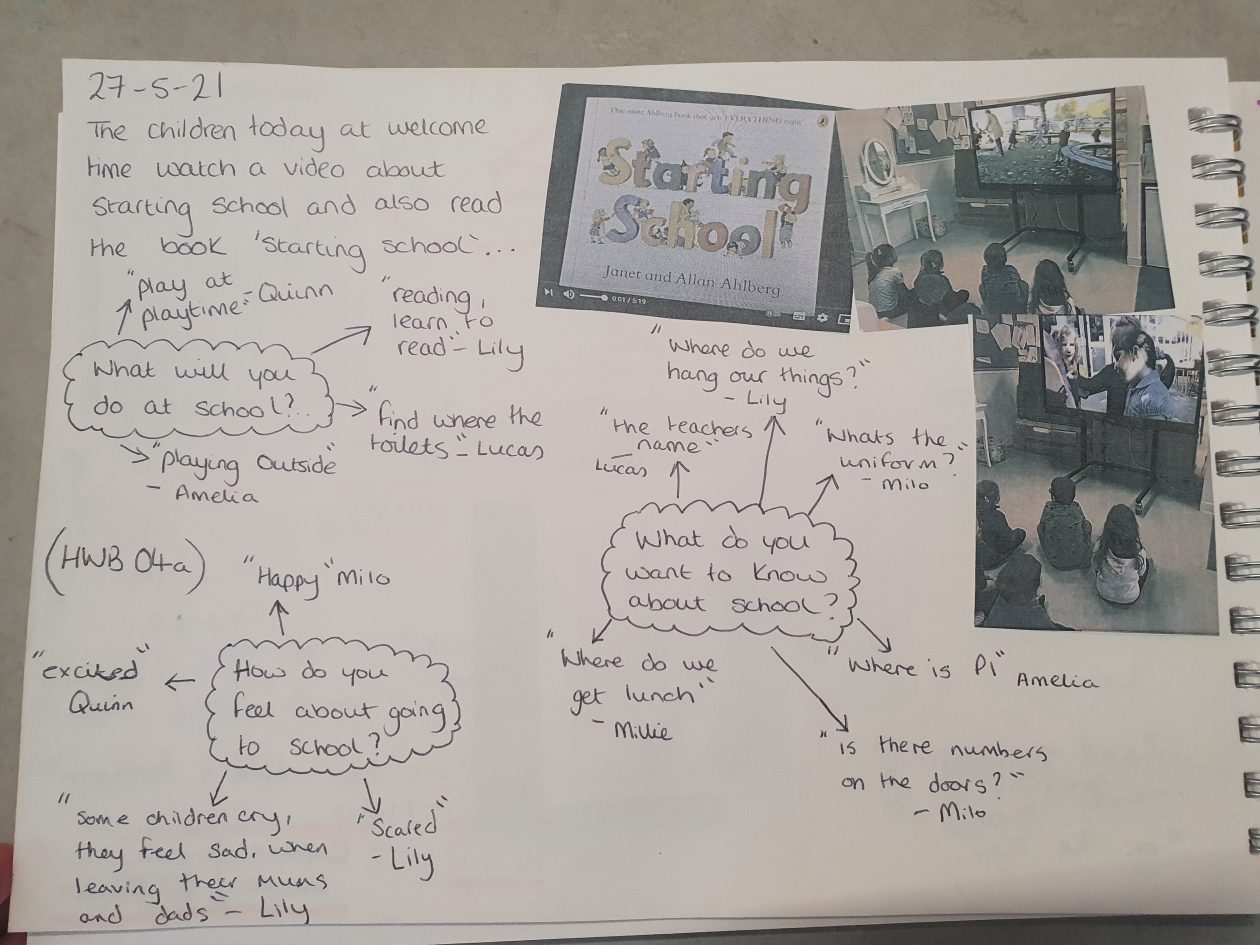 27-5-21
The children today at welcome
time watch a video about
starting school and also read
the book 'starting school'...
"play at
playtime" - Quinn
"reading,
learn to
read" - Lily
What will you
do at school?..
"find where the
toilets" - Lucas
"playing outside"
- Amelia
One more Ahlberg book that gets EVERYTHING right!
Starting
School
Janet and Allan Ahlberg
0:01 / 5:19
"Where do we
hang our things?"
- Lily
"the teachers
name"
- Lucas
"Whats the
uniform?"
- Milo
What do you
want to know
about school?
"Where do we
get lunch"
- Millie
"Where is P1" Amelia
"is there numbers
on the doors?"
- Milo
(HWB 04a)
"Happy" Milo
"excited"
Quinn
How do you
feel about going
to school?
"Some children cry,
they feel sad. when
leaving their mums
and dads" - Lily
"Scared"
- Lily